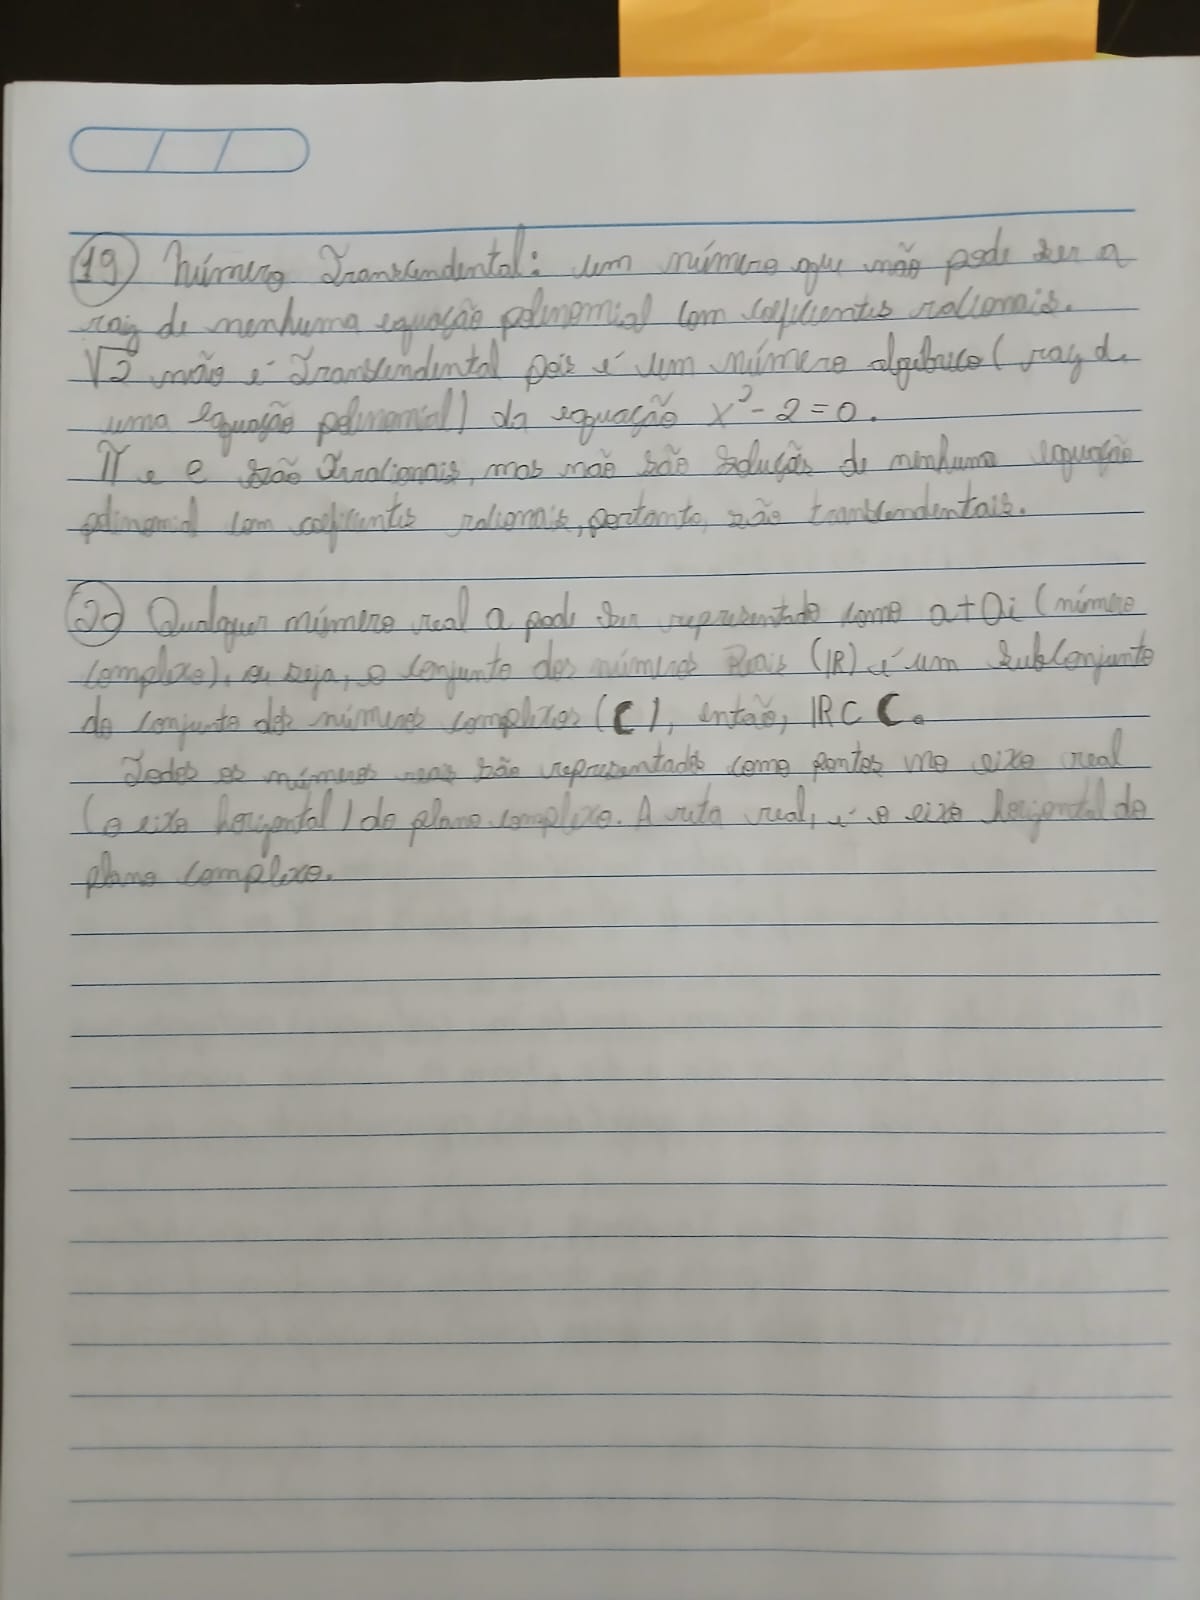 19) Número Transcendental: um número que não pode ser a
raiz de nenhuma equação polinomial com coeficientes racionais.
√2 não é Transcendental pois é um número algébrico (raiz de
uma equação polinomial) da equação x² - 2 = 0.
π e e são Irracionais, mas não são solução de nenhuma equação
polinomial com coeficientes racionais, portanto, são transcendentais.
20) Qualquer número real a pode ser representado como a + 0i (número
complexo), ou seja, o conjunto dos números Reais (ℝ) é um subconjunto
do conjunto dos números complexos (C), então, ℝ ⊂ C.
Todos os números reais são representados como pontos no eixo real
(o eixo horizontal) do plano complexo. A reta real, é o eixo horizontal do
plano complexo.